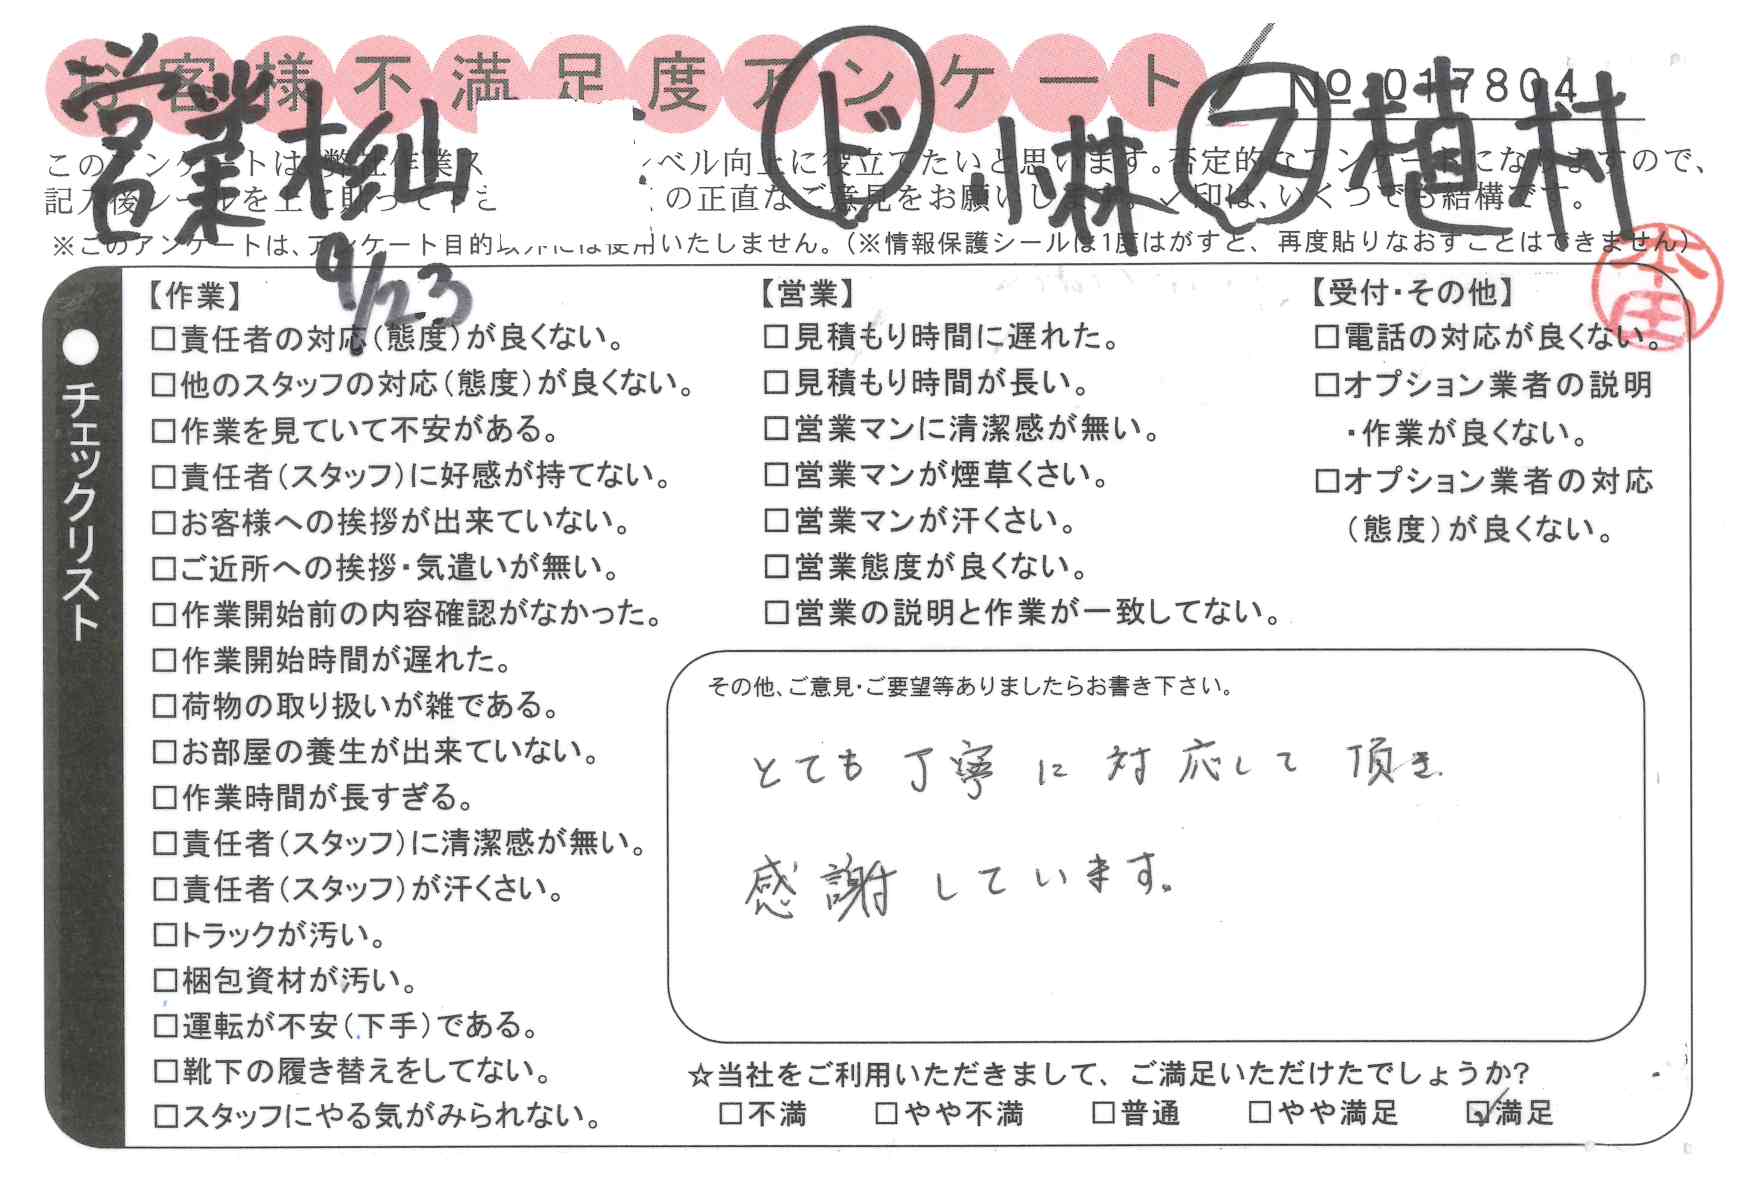 お客様不満足度アンケート
No 017804
営業 杉山 ド 小林 ス 植村
このアンケートは、弊社作業ス ベル向上に役立てたいと思います。否定的なアンケートになりますので、
記入後シールを上に貼って下さ の正直なご意見をお願いします。✓印は、いくつでも結構です。
※このアンケートは、アンケート目的以外には使用いたしません。（※情報保護シールは1度はがすと、再度貼りなおすことはできません）
9/23
本田
●チェックリスト
【作業】
□責任者の対応（態度）が良くない。
□他のスタッフの対応（態度）が良くない。
□作業を見ていて不安がある。
□責任者（スタッフ）に好感が持てない。
□お客様への挨拶が出来ていない。
□ご近所への挨拶・気遣いが無い。
□作業開始前の内容確認がなかった。
□作業開始時間が遅れた。
□荷物の取り扱いが雑である。
□お部屋の養生が出来ていない。
□作業時間が長すぎる。
□責任者（スタッフ）に清潔感が無い。
□責任者（スタッフ）が汗くさい。
□トラックが汚い。
□梱包資材が汚い。
□運転が不安（下手）である。
□靴下の履き替えをしてない。
□スタッフにやる気がみられない。
【営業】
□見積もり時間に遅れた。
□見積もり時間が長い。
□営業マンに清潔感が無い。
□営業マンが煙草くさい。
□営業マンが汗くさい。
□営業態度が良くない。
□営業の説明と作業が一致してない。
【受付・その他】
□電話の対応が良くない。
□オプション業者の説明
・作業が良くない。
□オプション業者の対応
（態度）が良くない。
その他、ご意見・ご要望等ありましたらお書き下さい。
とても丁寧に対応して頂き
感謝しています。
☆当社をご利用いただきまして、ご満足いただけたでしょうか?
□不満 □やや不満 □普通 □やや満足 ☑満足